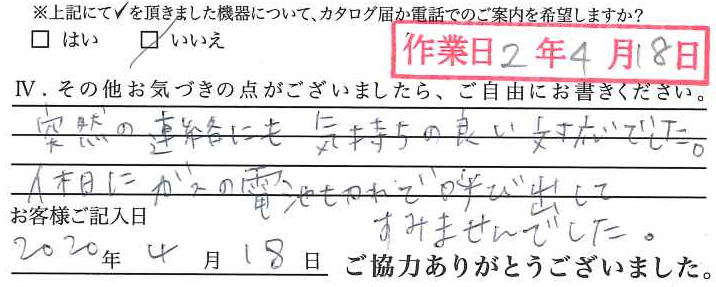 ※上記にて✓を頂きました機器について、カタログ届か電話でのご案内を希望しますか?
□ はい □ いいえ
作業日2年4月18日
Ⅳ．その他お気づきの点がございましたら、ご自由にお書きください。
突然の連絡にも 気持ちの良い対応でした。
休日にガスの電池もれで呼び出して
すみませんでした。
お客様ご記入日
2020年 4 月 18 日 ご協力ありがとうございました。